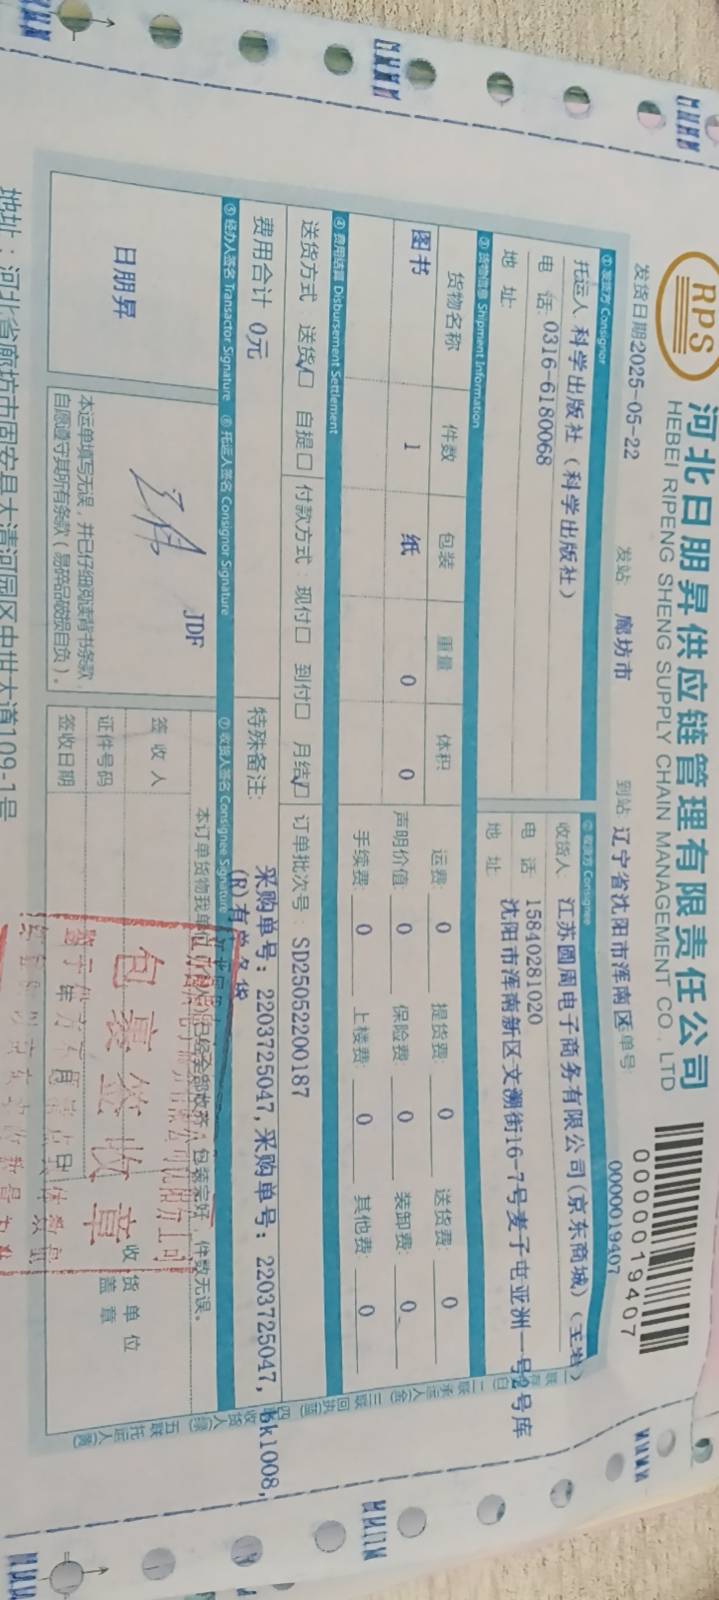 RPS
河北日朋昇供应链管理有限责任公司
HEBEI RIPENG SHENG SUPPLY CHAIN MANAGEMENT CO . LTD
0000019407
发货日期2025-05-22
发站: 廊坊市
到站: 辽宁省沈阳市浑南区
单号: 0000019407
① 发货方 Consignor
② 收货方 Consignee
托运人 科学出版社（科学出版社）
收货人 江苏圆周电子商务有限公司(京东商城)
电 话: 0316-6180068
电 话 15840281020
地 址:
地 址 沈阳市浑南新区文溯街16-7号麦子屯亚洲一号2号库
③ 货物信息 Shipment Information
货物名称 件数 包装 重量 体积
运费: 0 提货费: 0 送货费: 0
图书 1 纸 0 0
声明价值: 0 保险费: 0 装卸费: 0
手续费: 0 上楼费: 0 其他费: 0
④ 费用结算 Disbursement Settlement
送货方式: 送货☑ 自提口 付款方式: 现付口 到付口 月结☑
订单批次号: SD25052200187
费用合计 0元
特殊备注: 采购单号: 2203725047, 采购单号: 2203725047, bk1008,
⑤ 经办人签名 Transactor Signature
⑥ 托运人签名 Consignor Signature
⑦ 收货人签名 Consignee Signature
日朋昇
JDF
本运单填写无误，并已仔细阅读背书条款，
自愿遵守其所有条款（易碎品破损自负）。
包装完好，件数无误。
签 收 人
证件号码
签收日期
年 月 日
收货单位
盖章
包裹签收章
地址：河北省廊坊市固安县大清河园区中世大道109-1号